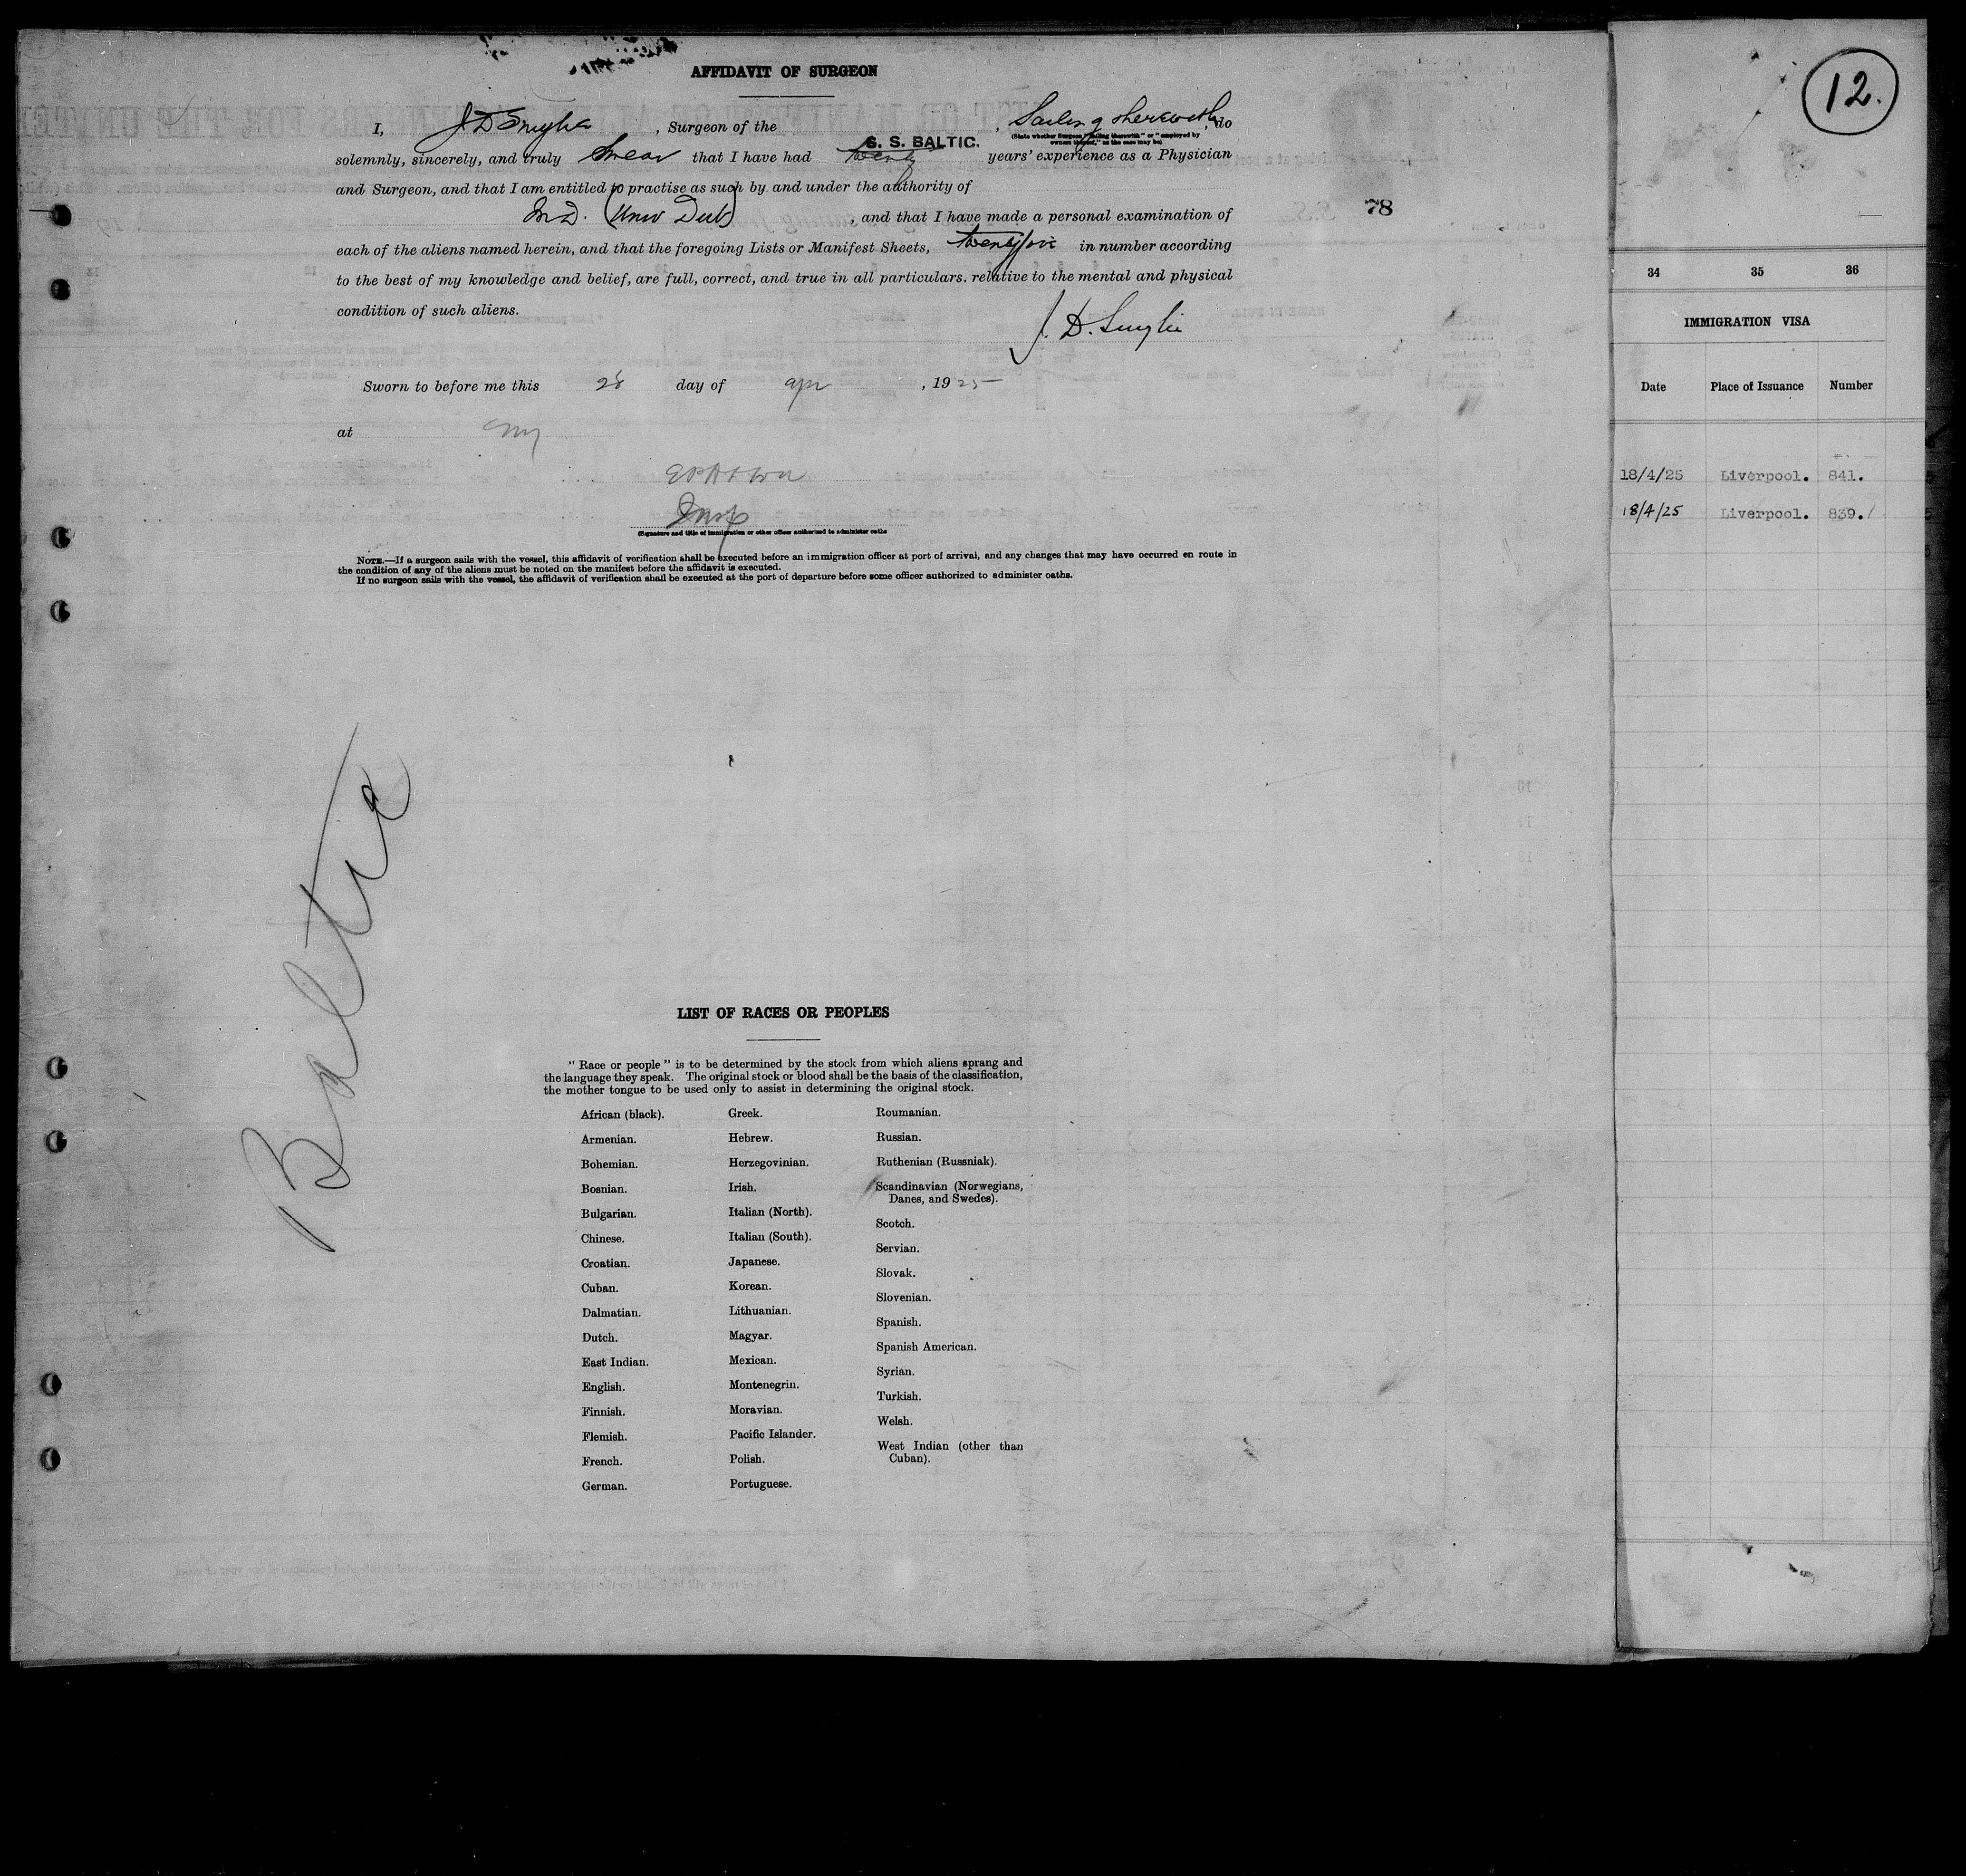 AFFIDAVIT OF SURGEON
I, J D Smylie, Surgeon of the S. S. BALTIC., Sailing therewith, do
(State whether Surgeon "sailing therewith" or "employed by
owners thereof," as the case may be)
solemnly, sincerely, and truly swear that I have had twenty years' experience as a Physician
and Surgeon, and that I am entitled to practise as such by and under the authority of
M.D. (Univ Dub), and that I have made a personal examination of
78
each of the aliens named herein, and that the foregoing Lists or Manifest Sheets, in number according
to the best of my knowledge and belief, are full, correct, and true in all particulars. relative to the mental and physical
condition of such aliens.
J. D. Smylie
Sworn to before me this 28 day of apr, 1925
at NY
Insp
(Signature and title of immigration or other officer authorized to administer oaths
NOTE.—If a surgeon sails with the vessel, this affidavit of verification shall be executed before an immigration officer at port of arrival, and any changes that may have occurred en route in
the condition of any of the aliens must be noted on the manifest before the affidavit is executed.
If no surgeon sails with the vessel, the affidavit of verification shall be executed at the port of departure before some officer authorized to administer oaths.
Baltic
LIST OF RACES OR PEOPLES
"Race or people" is to be determined by the stock from which aliens sprang and
the language they speak. The original stock or blood shall be the basis of the classification,
the mother tongue to be used only to assist in determining the original stock.
African (black).
Armenian.
Bohemian.
Bosnian.
Bulgarian.
Chinese.
Croatian.
Cuban.
Dalmatian.
Dutch.
East Indian.
English.
Finnish.
Flemish.
French.
German.
Greek.
Hebrew.
Herzegovinian.
Irish.
Italian (North).
Italian (South).
Japanese.
Korean.
Lithuanian.
Magyar.
Mexican.
Montenegrin.
Moravian.
Pacific Islander.
Polish.
Portuguese.
Roumanian.
Russian.
Ruthenian (Russniak).
Scandinavian (Norwegians,
Danes, and Swedes).
Scotch.
Servian.
Slovak.
Slovenian.
Spanish.
Spanish American.
Syrian.
Turkish.
Welsh.
West Indian (other than
Cuban).
12.
34 35 36
IMMIGRATION VISA
Date Place of Issuance Number
18/4/25 Liverpool. 841.
18/4/25 Liverpool. 839.